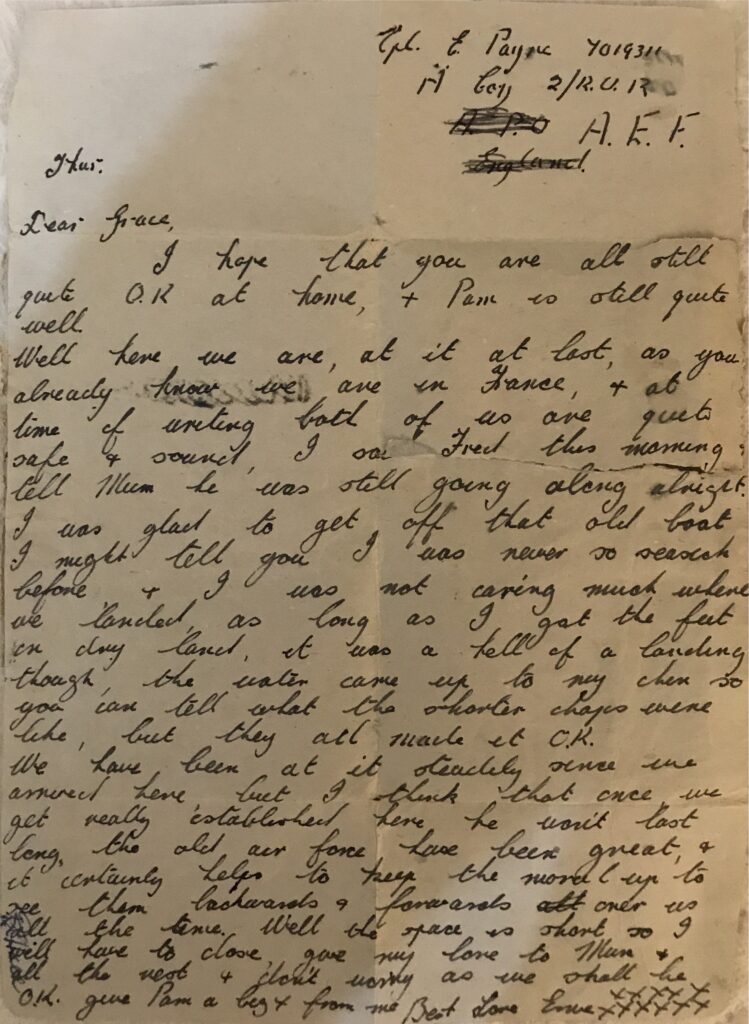 Cpl. E. Payne 7019311
A Coy 2/R.U.R
A.P.O A.E.F.
England.
Thur.
Dear Grace,
I hope that you are all still
quite O.K at home, + Pam is still quite
well.
Well here we are, at it at last, as you
already know we are in France, + at
time of writing both of us are quite
safe + sound, I saw Fred this morning +
tell Mum he was still going along alright.
I was glad to get off that old boat
I might tell you I was never so seasick
before + I was not caring much where
we landed, as long as I got the feet
on dry land, it was a hell of a landing
though, the water came up to my chin so
you can tell what the shorter chaps were
like, but they all made it O.K.
We have been at it steadily since we
arrived here but I think that once we
get really established here he won't last
long, the old air force have been great, +
it certainly helps to keep the moral up to
see them backwards + forwards all over us
all the time. Well the space is short so I
will have to close, give my love to Mum +
all the rest + don't worry as we shall be
O.K. give Pam a big x from me Best Love Ernie xxxxxx
xxxxxx